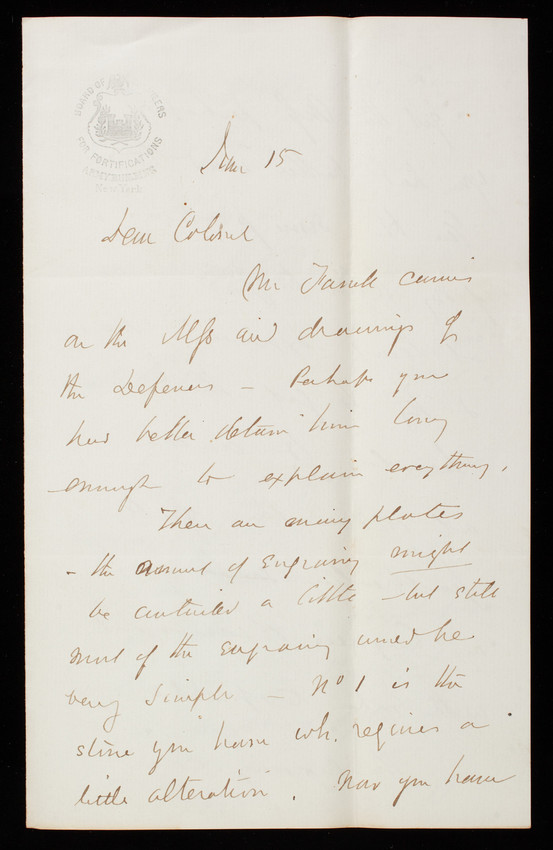 BOARD OF ENGINEERS
FOR FORTIFICATIONS
ARMY BUILDING
New York
15
Dear Colonel
Mr Farrell carries
on the Mss and drawings of
the Defences – Perhaps you
had better detain him long
enough to explain everything.
There are many plates
– the amount of engraving might
be curtailed a little – but still
most of the engraving would be
very simple – No 1 is the
stone you have wh. requires a
little alteration. Now you have